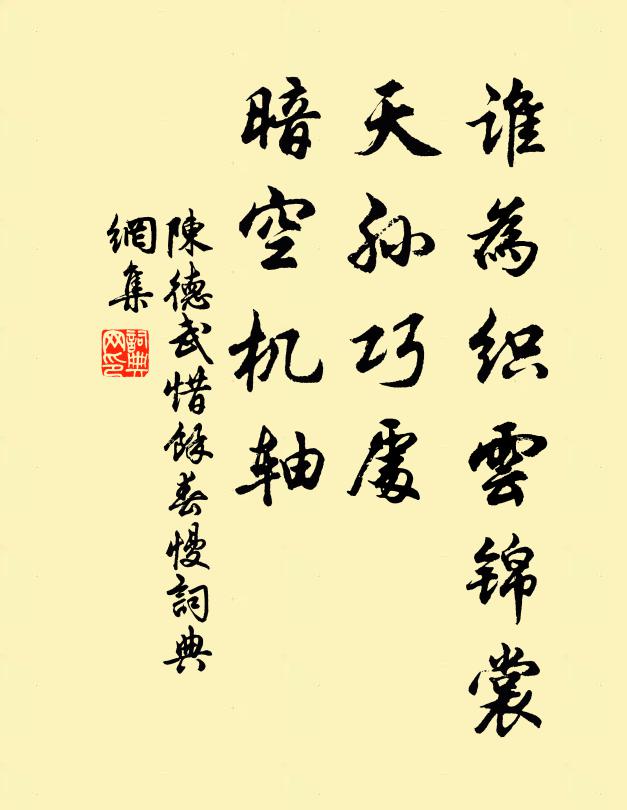 谁為织雲锦裳
天孙巧處
暗空机轴
陳德武惜餘春慢詞典
網集
詞典
网印